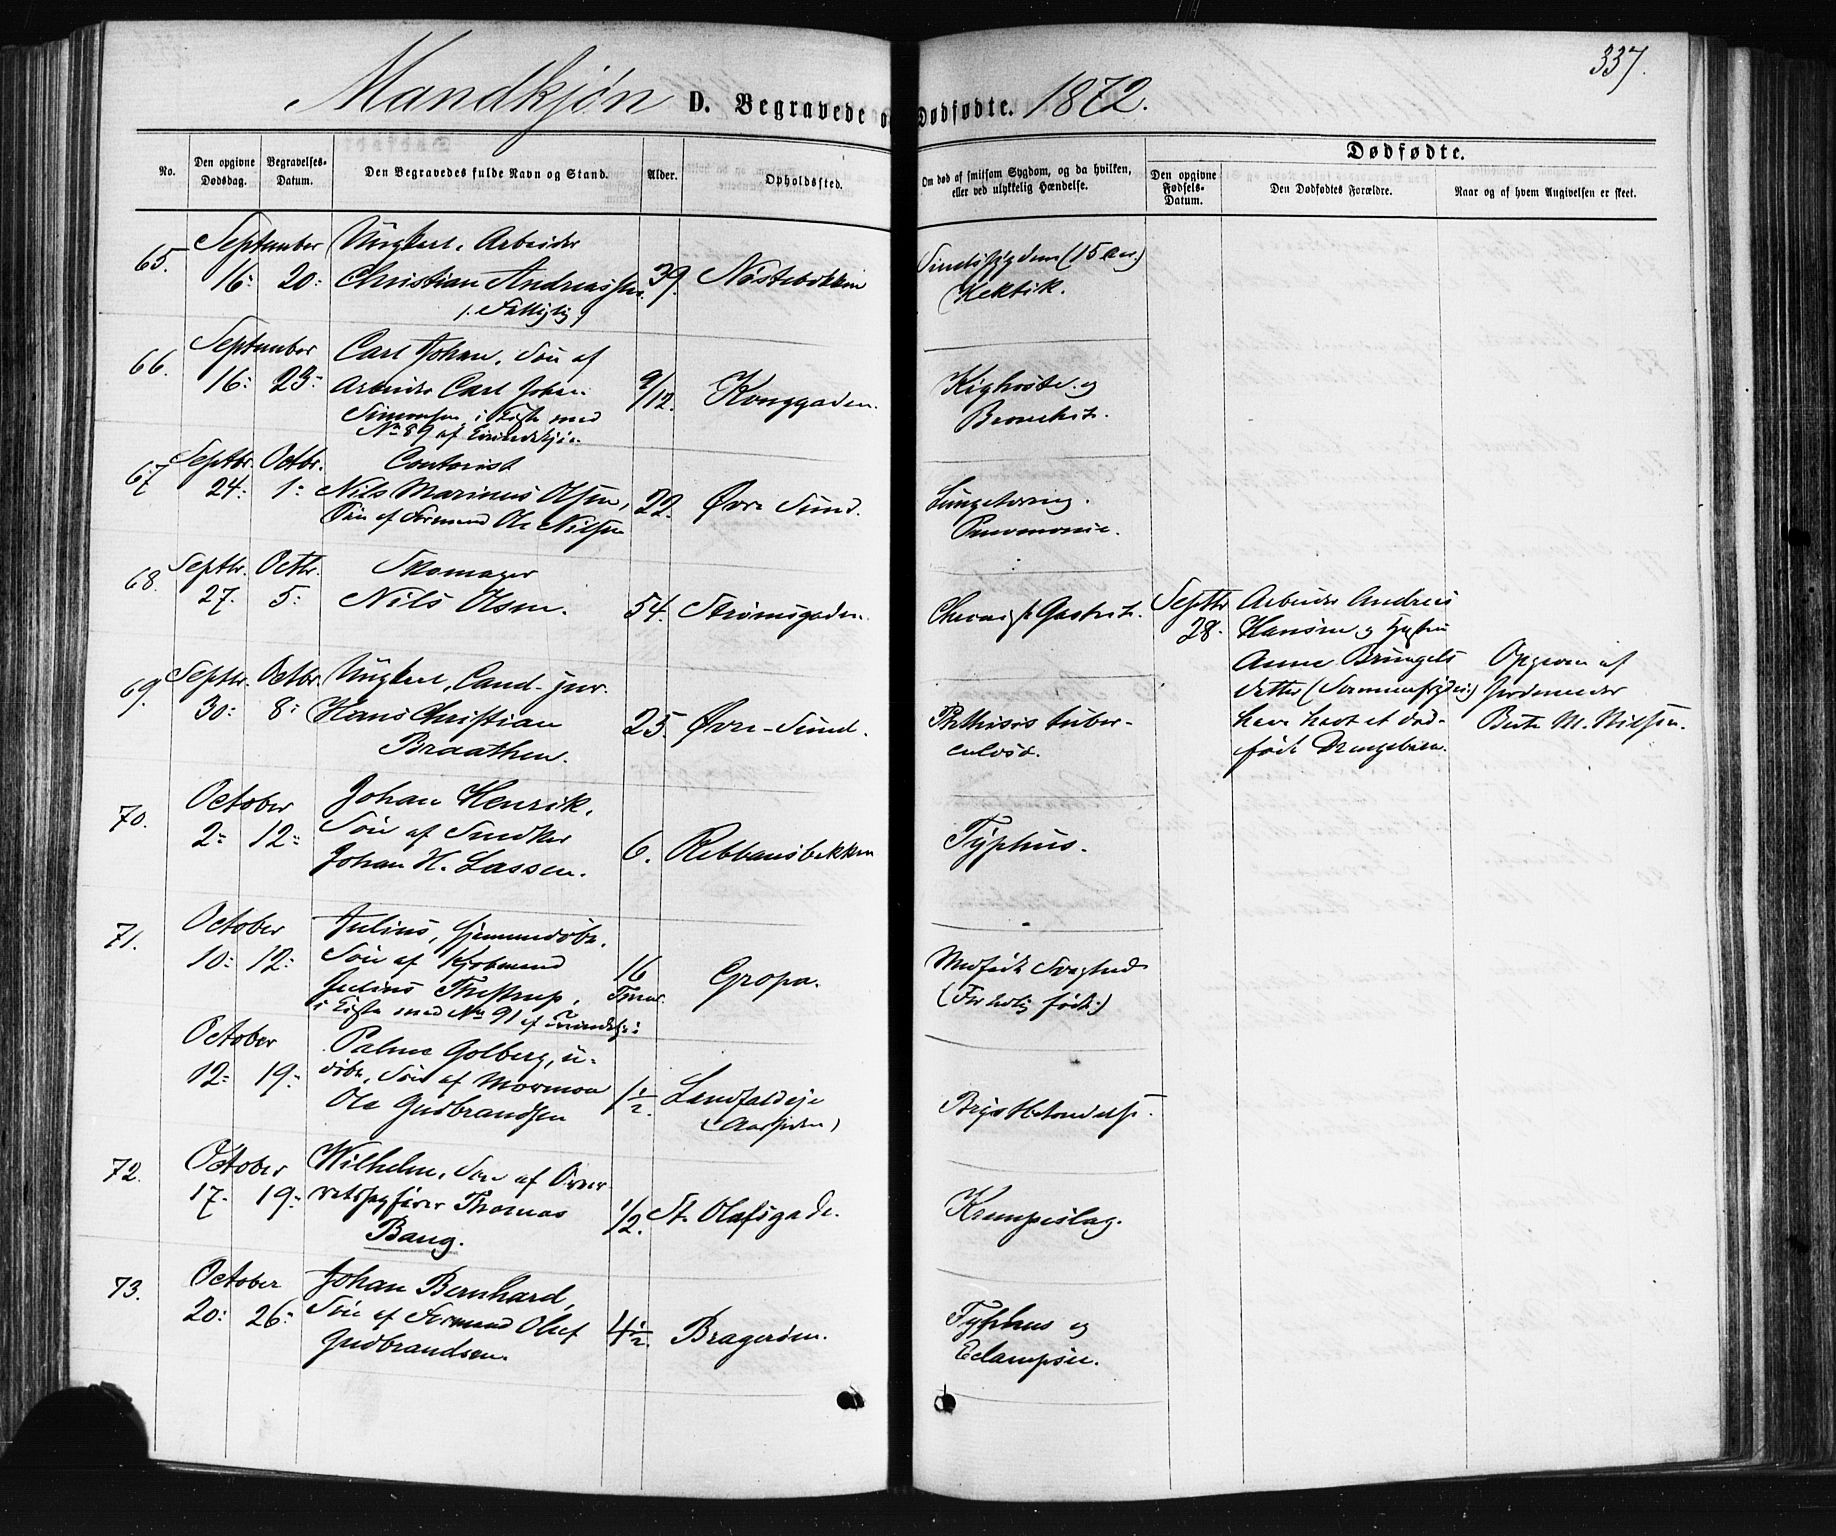 337.
Mandkjøn D. Begravede og Dødfødte. 1872.
No.
Den opgivne Dødsdag.
Begravelses-Datum.
Den Begravedes fulde Navn og Stand.
Alder.
Opholdssted.
Om død af smitsom Sygdom, og da hvilken, eller ved ulykkelig Hændelse.
Dødfødte.
Den opgivne Fødsels-Datum.
Den Dødfødtes Forældre.
Naar og af hvem Angivelsen er skeet.
65.
September
16: 20:
Ungkarl, Arbeider
Christian Andreassen
39.
Sindssygdom (15 Aar)
Hektik.
66.
September
16: 23:
Carl Johan, Søn af
Arbeider Carl Johan
Simonsen, i Kiste med
No 89 af Qvindekjøn
9/12.
Konggaden.
Kighoste og
Bronchit.
67
Septbr. Octbr.
24: 1:
Contorist
Nils Marinus Olsen,
Søn af Formand Ole Nilsen
22.
Øvre Sund.
Lungetæring.
Pneumonie.
68.
Septbr. Octbr.
27. 5:
Skomager
Nils Olsen.
54.
Strømsgaden.
Chronisk Gastrit.
Septbr
28.
Arbeider Andreas
Hansen og Hustru
Anne Brüngels
datter
have havt et død-
født Drengebarn.
Opgiven af
Jordemoder
M. Nilsen.
69.
Septbr. Octbr.
30: 8:
Ungkarl, Cand. jur.
Hans Christian
Braathen.
25.
Øvre-Sund.
Phthisis tuber-
culos.
70.
October
2: 12:
Johan Henrik,
Søn af Snedker
Johan H. Lassen.
6.
Rebbansbakken
Typhus.
71.
October
10: 12:
Julius, hjemmedøbt,
Søn af Kjøbmand
Julius Thestrup,
i Kiste med No 91 af Qvindekjøn
16
Timer.
Gropa.
Medfødt Svaghed
(For tidlig født)
October
12: 19:
Palme Golberg, u-
døbt, Søn af Mormon
Ole Gudbrandsen
1 1/2.
Landfaldeie
(Aarsiden)
Brystbetændelse.
72.
October
17. 19:
Wilhelm, Søn af Over-
retssagfører Thomas
Bang.
1/2.
St. Olafsgade.
Krampeslag.
73.
October
20: 26:
Johan Bernhard,
Søn af Formand Oluf
Gudbrandsen.
4 1/2.
Bragerøen.
Typhus og
Eclampsie.